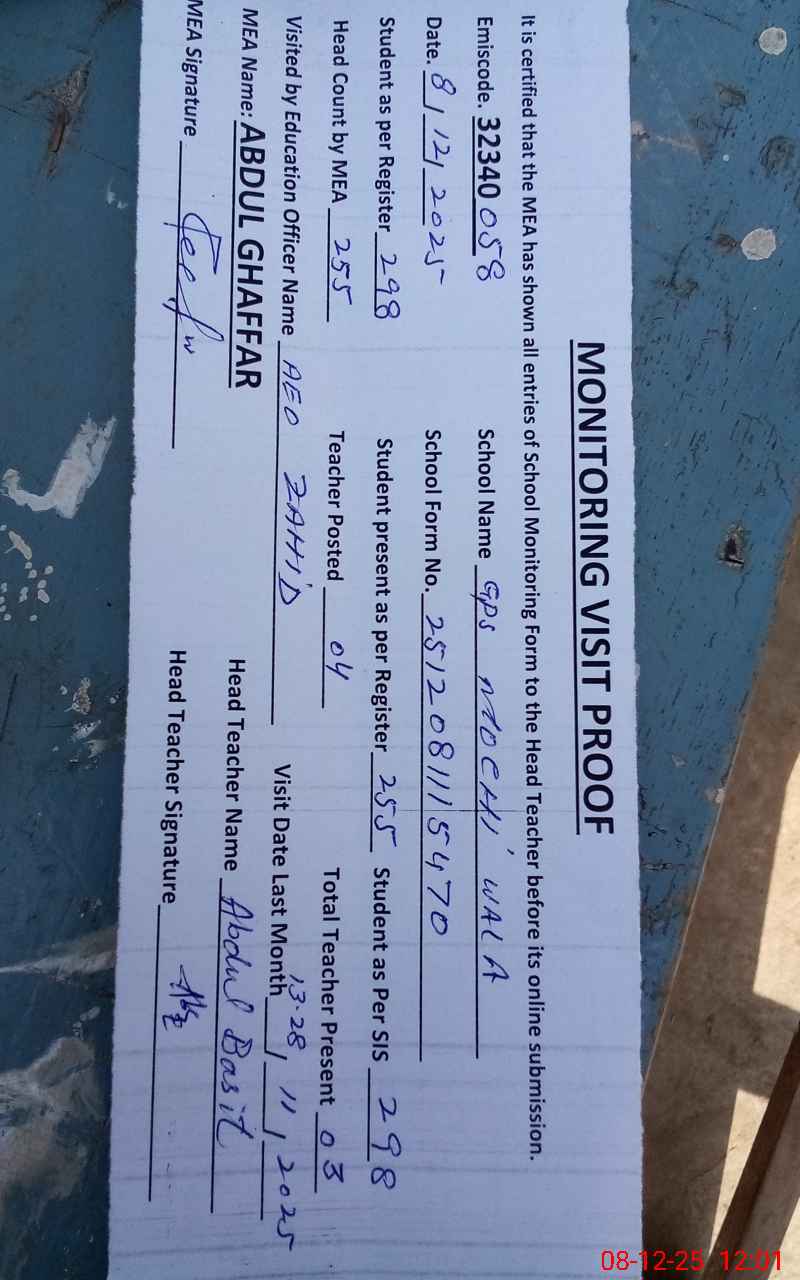 MONITORING VISIT PROOF
It is certified that the MEA has shown all entries of School Monitoring Form to the Head Teacher before its online submission.
Emiscode. 32340058 School Name GPS MOCHI WALA
Date. 8/12/2025 School Form No. 25120811115470
Student as per Register 298 Student present as per Register 255 Student as Per SIS 298
Head Count by MEA 255 Teacher Posted 04 Total Teacher Present 03
Visited by Education Officer Name AEO ZAHID Visit Date Last Month 13-28/11/2025
MEA Name: ABDUL GHAFFAR Head Teacher Name Abdul Basit
MEA Signature Head Teacher Signature
08-12-25 12:01